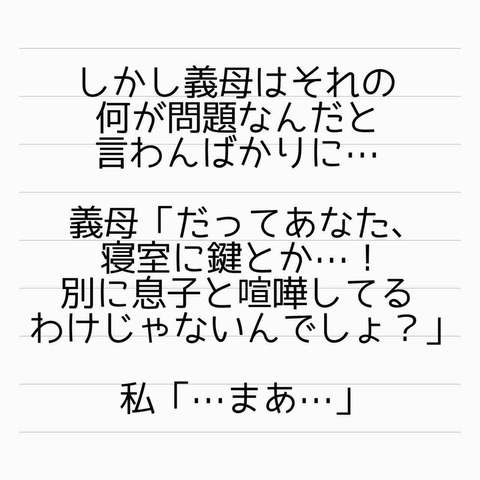 しかし義母はそれの
何が問題なんだと
言わんばかりに…
義母「だってあなた、
寝室に鍵とか…！
別に息子と喧嘩してる
わけじゃないんでしょ？」
私「…まあ…」